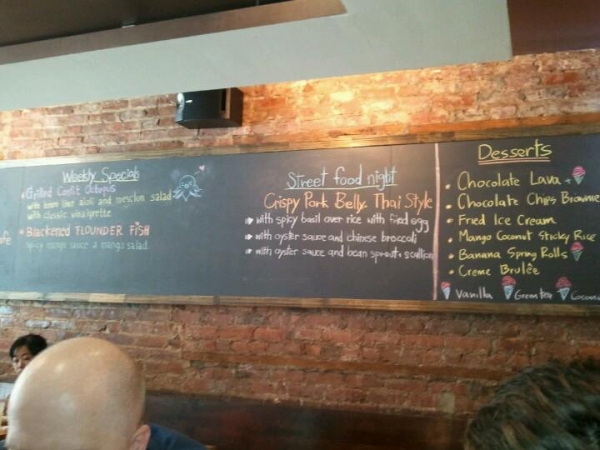 Weekly Specials
• Grilled Confit Octopus
with lemon lime aioli and mesclun salad
with classic vinaigrette
• Blackened FLOUNDER FISH
spicy mango sauce a mango salad
Street food night
Crispy Pork Belly, Thai Style
with spicy basil over rice with fried egg
with oyster sauce and chinese broccoli
with oyster sauce and bean sprout & scallion
Desserts
• Chocolate Lava +
• Chocolate Chips Brownie
• Fried Ice Cream
• Mango Coconut Sticky Rice
• Banana Spring Rolls
• Creme Brulée
Vanilla Green tea Coconut